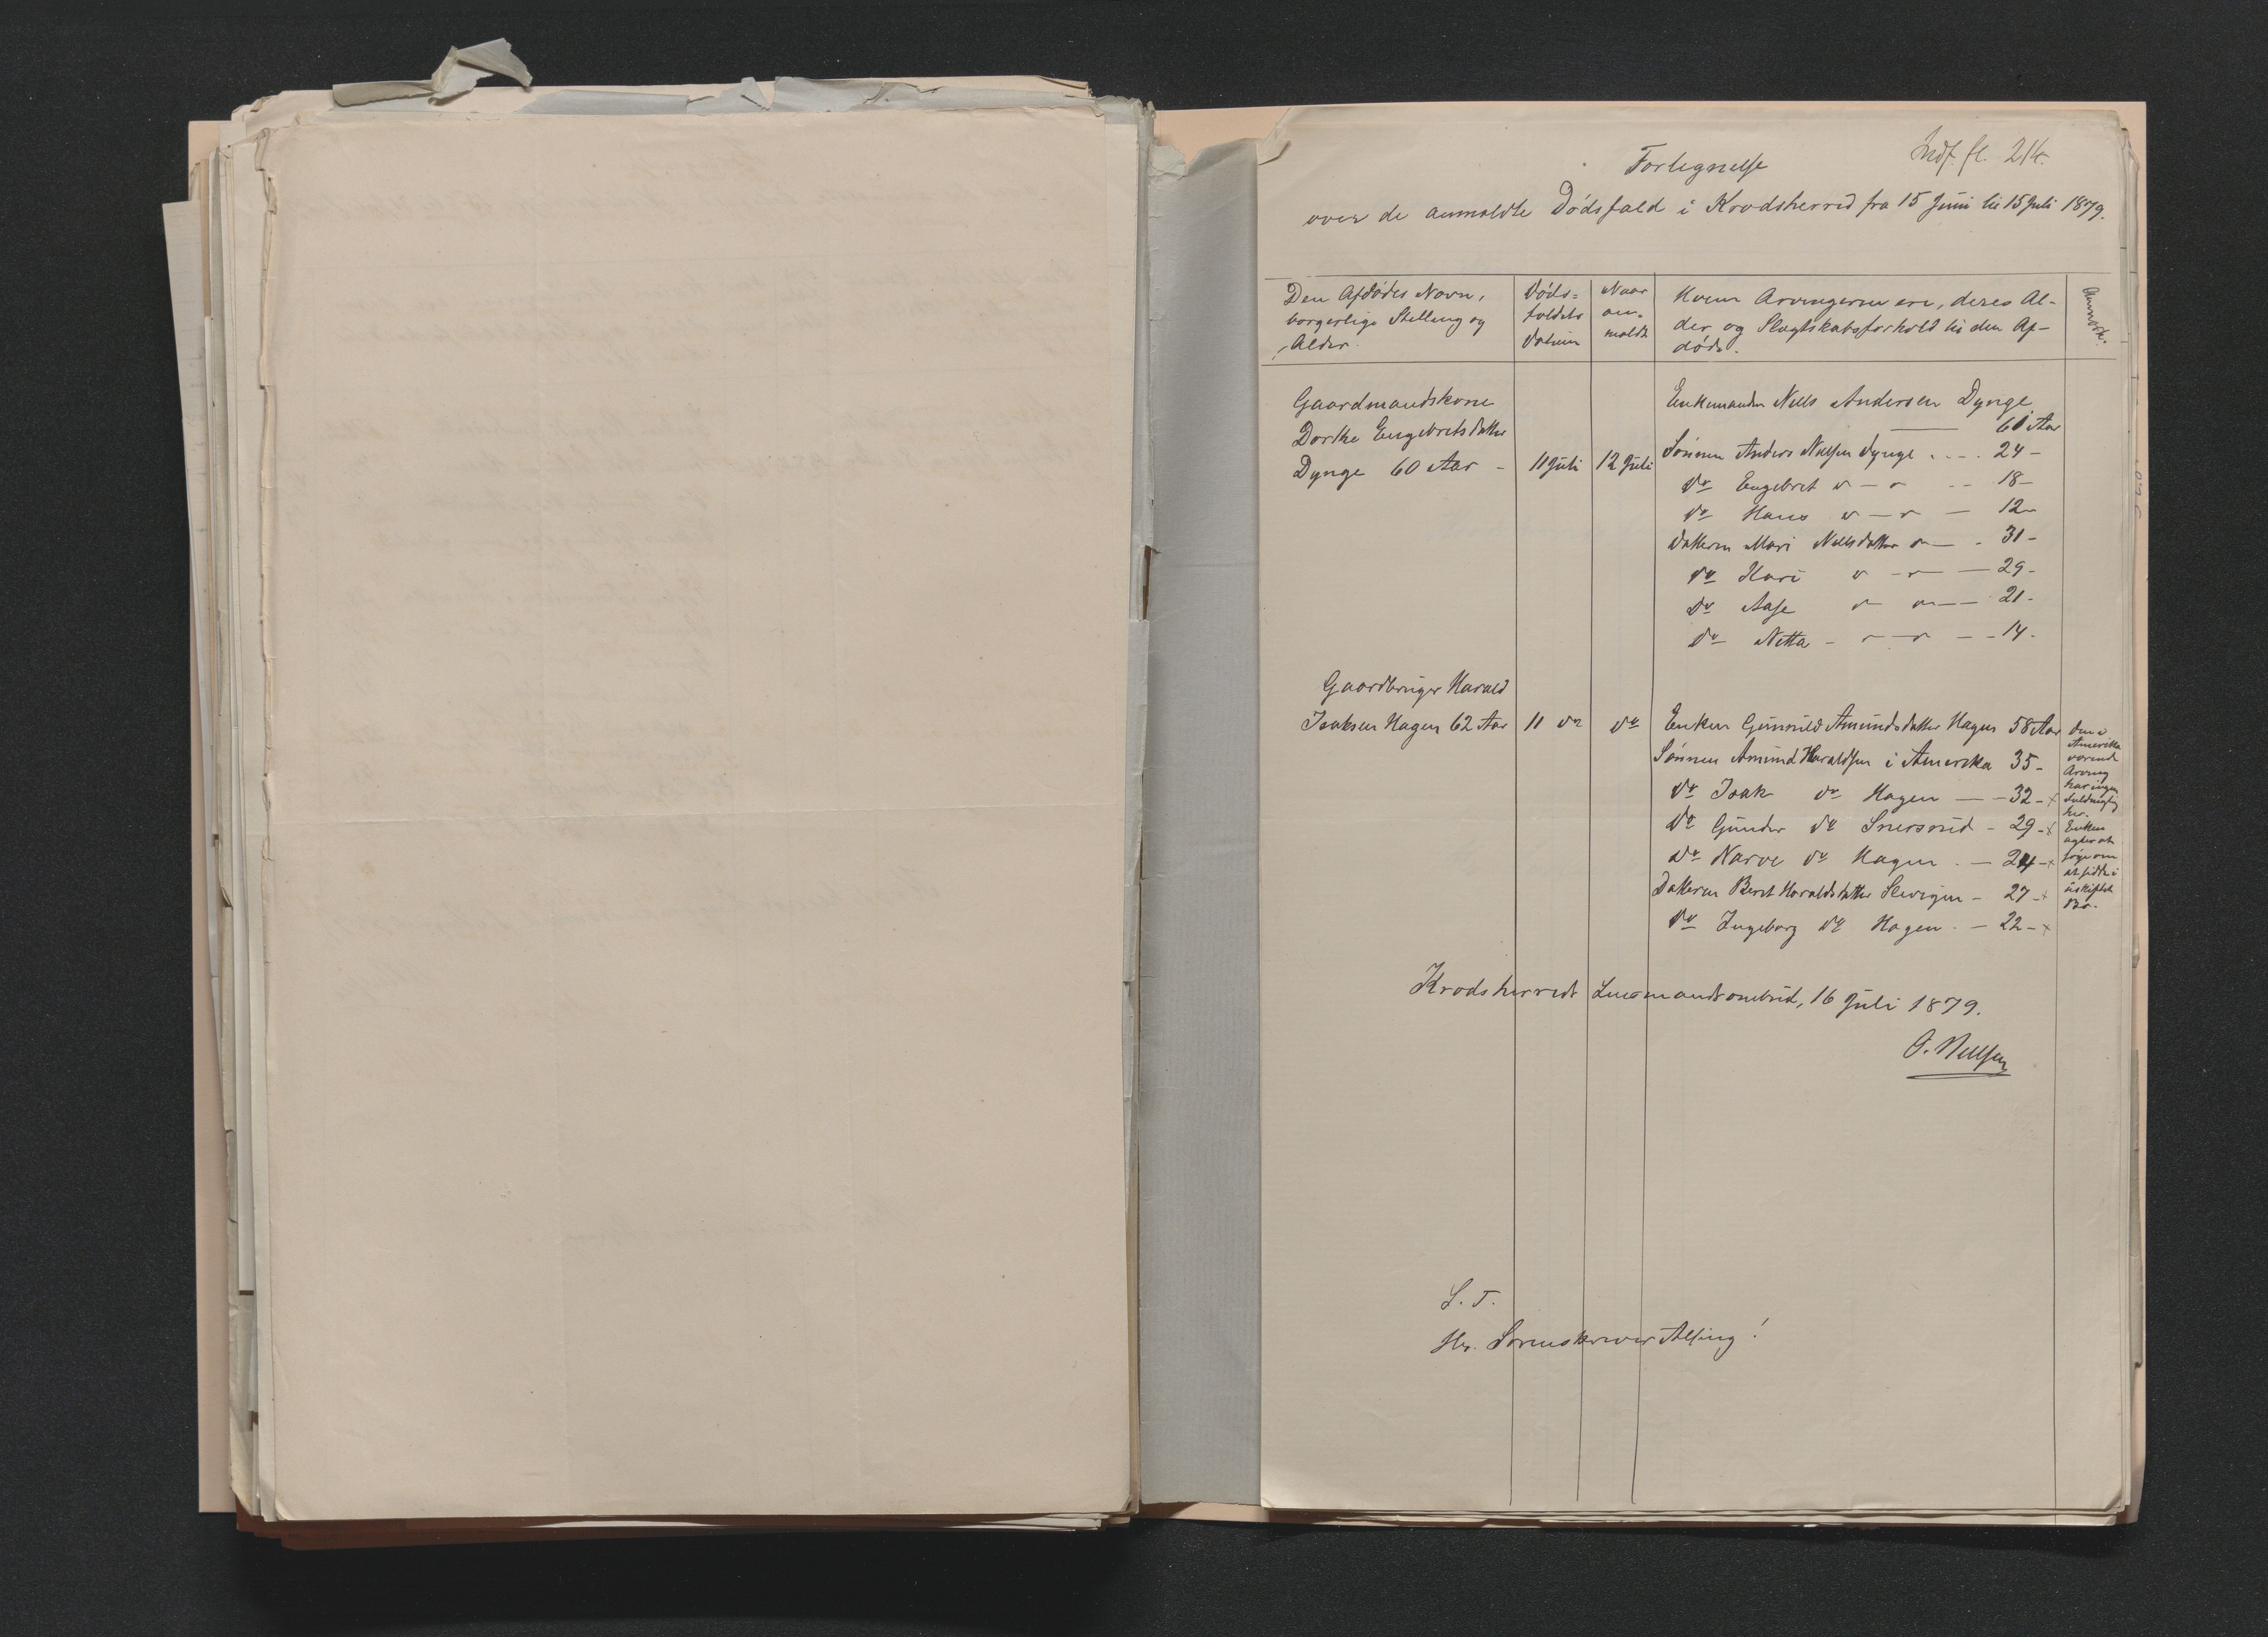 Indf. fl. 214.
Fortegnelse
over de anmeldte Dødsfald i Krodsherred fra 15 Juni til 15 Juli 1879.
Den Afdødes Navn,
borgerlige Stilling og
Alder.
Døds-
faldets
Datum
Naar
an-
meldt
Hvem Arvingerne ere, deres Al-
der og Slægtskabsforhold til den Af-
døde.
Anmærk.
Gaardmandskone
Dorthe Engebretsdatter
Dynge 60 Aar - 11 Juli 12 Juli
Enkemanden Nells Andersen Dynge
— 61 Aar
Sønnen Anders Nellsen Dynge . - - . 24 -
do Engebret " - " - - 18 -
do Hans " - " - 12 -
Datteren Mari Nellsdatter " - . 31 -
do Kari " - " — 29 -
do Aase " " — 21 -
do Netta - " - " - - 14 -
Gaardbruger Harald
Isaksen Hagen 62 Aar 11 do do Enken Gunnild Amundsdatter Hagen 58 Aar
Sønnen Amund Haraldsen i Amerika 35 -
do Isak do Hagen — - 32 - x
do Gunder do Snersrud - 29 - x
do Narve do Hagen . — 24 - x
Datteren Berit Haraldsdatter Slevigen - 27 - x
do Ingeborg do Hagen . — 22 - x
Den i
Amerika
værende
Arving
har ingen
Fuldmægtig
her.
Enken
agter at
søge om
at sidde i
uskiftet
Bo.
Krodsherred Lensmandsombud, 16 Juli 1879.
O. Nellsen
S. T.
Hr. Sorenskriver Alsing!